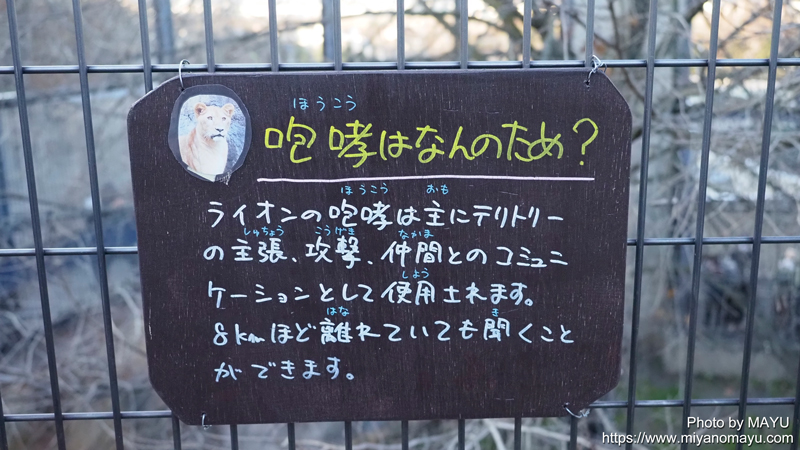 ほうこう
咆哮はなんのため？
ほうこう おも
ライオンの咆哮は主にテリトリー
しゅちょう こうげき なかま
の主張、攻撃、仲間とのコミュニ
しよう
ケーションとして使用されます。
はな き
8kmほど離れていても聞くこと
ができます。
Photo by MAYU
https://www.miyanomayu.com/